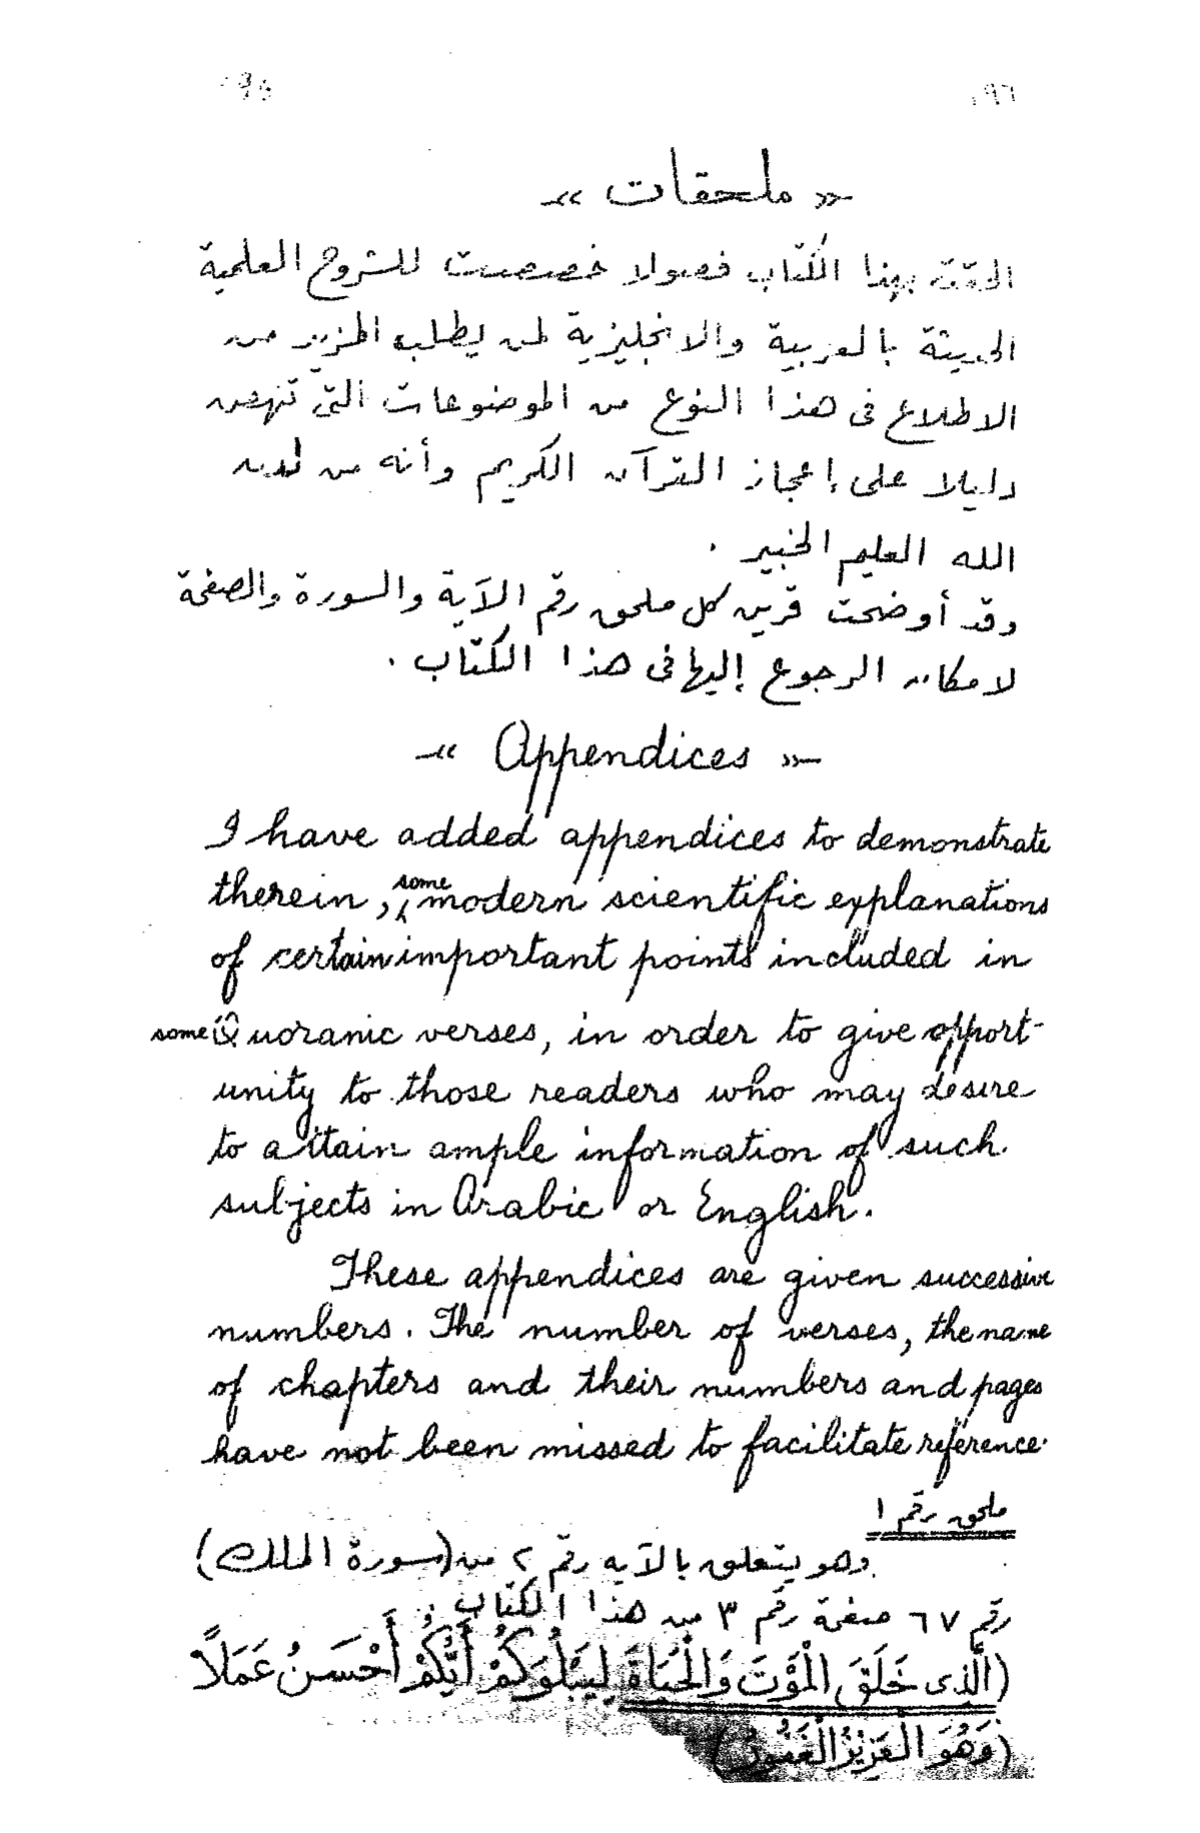 ١٩٦
« ملحقات »
ألحقت بهذا الكتاب فصولا خصصت للشروح العلمية
الحديثة بالعربية والانجليزية لمن يطلب المزيد من
الاطلاع فى هذا النوع من الموضوعات التى تنهض
دليلا على إعجاز القرآن الكريم وأنه من لدن
الله العليم الخبير .
وقد أوضحت قرين كل ملحق رقم الآية والسورة والصفحة
لامكان الرجوع إليها فى هذا الكتاب .
« Appendices »
I have added appendices to demonstrate
therein, some modern scientific explanations
of certain important points included in
some Quoranic verses, in order to give opport-
unity to those readers who may desire
to attain ample information of such
subjects in Arabic or English.
These appendices are given successive
numbers. The number of verses, the name
of chapters and their numbers and pages
have not been missed to facilitate reference.
ملحق رقم ١
وهو يتعلق بالآيه رقم ٢ من (سورة الملك)
رقم ٦٧ صفحة رقم ٣ من هذا الكتاب .
(الَّذِى خَلَقَ الْمَوْتَ وَالْحَيَاةَ لِيَبْلُوَكُمْ أَيُّكُمْ أَحْسَنُ عَمَلاً
(وَهُوَ الْعَزِيزُ الْغَفُورُ)